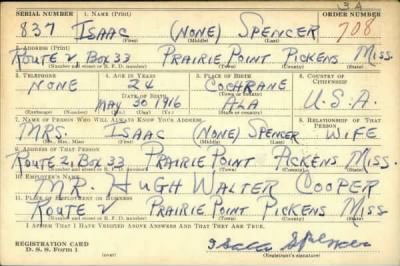 3A
SERIAL NUMBER 1. NAME (Print) ORDER NUMBER
837 ISAAC (NONE) SPENCER 708
(First) (Middle) (Last)
2. ADDRESS (Print)
ROUTE 2 BOX 33 PRAIRIE POINT PICKENS MISS.
(Number and street or R. F. D. number) (Town) (County) (State)
3. TELEPHONE 4. AGE IN YEARS 5. PLACE OF BIRTH 6. COUNTRY OF CITIZENSHIP
NONE 24 COCHRANE
DATE OF BIRTH
MAY 30 1916 ALA U.S.A.
(Exchange) (Number) (Mo.) (Day) (Yr.) (State or country)
7. NAME OF PERSON WHO WILL ALWAYS KNOW YOUR ADDRESS 8. RELATIONSHIP OF THAT PERSON
MRS. ISAAC (NONE) SPENCER WIFE
(Mr., Mrs., Miss) (First) (Middle) (Last)
9. ADDRESS OF THAT PERSON
ROUTE 2, BOX 33 PRAIRIE POINT PICKENS MISS.
(Number and street or R. F. D. number) (Town) (County) (State)
10. EMPLOYER'S NAME
MR. HUGH WALTER COOPER
11. PLACE OF EMPLOYMENT OR BUSINESS
ROUTE 2 PRAIRIE POINT PICKENS MISS
(Number and street or R. F. D. number) (Town) (County) (State)
I AFFIRM THAT I HAVE VERIFIED ABOVE ANSWERS AND THAT THEY ARE TRUE.
REGISTRATION CARD
D. S. S. Form 1 Isaac Spencer
(Registrant's signature)